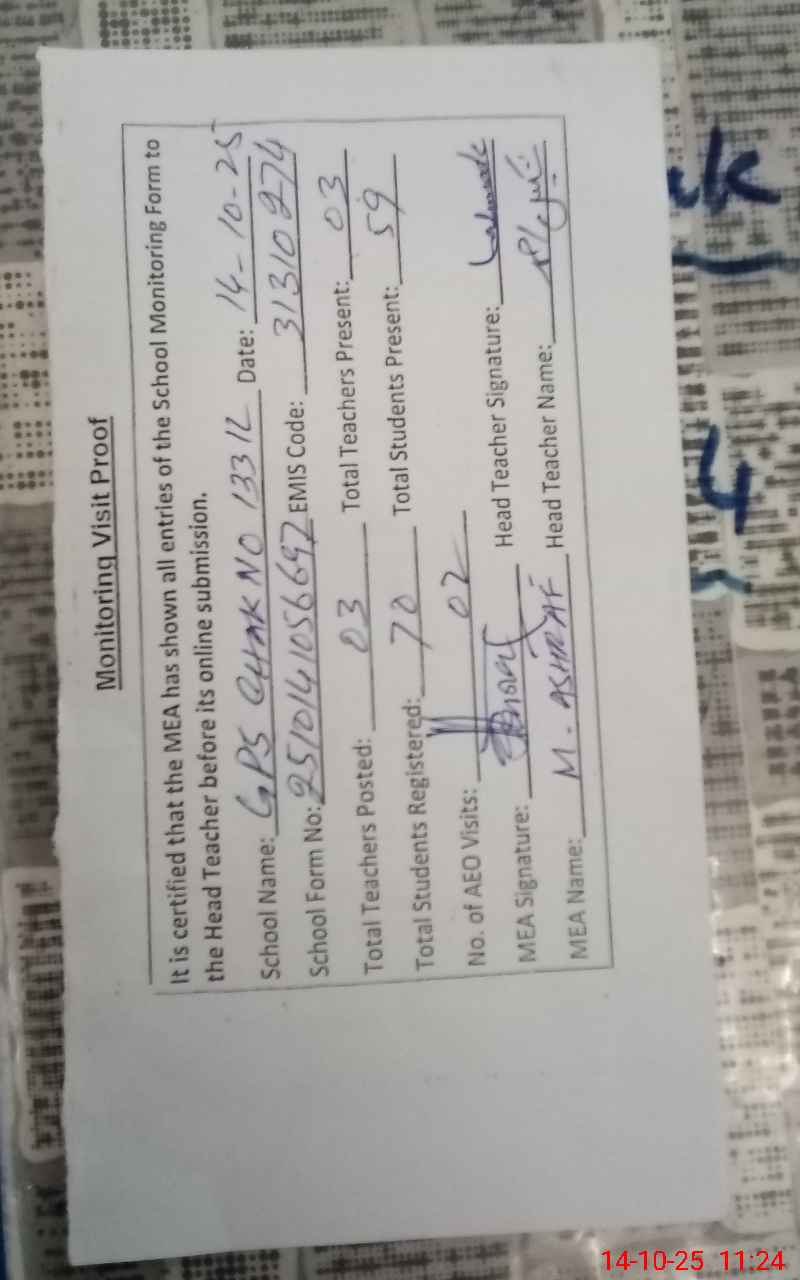 Monitoring Visit Proof
It is certified that the MEA has shown all entries of the School Monitoring Form to
the Head Teacher before its online submission.
School Name: GPS CHAK NO 133 1L Date: 14-10-25
School Form No: 2510141056697 EMIS Code: 31310274
Total Teachers Posted: 03 Total Teachers Present: 03
Total Students Registered: 70 Total Students Present: 59
No. of AEO Visits: 02
MEA Signature: Head Teacher Signature:
MEA Name: M. ASHRAF Head Teacher Name:
4
14-10-25 11:24